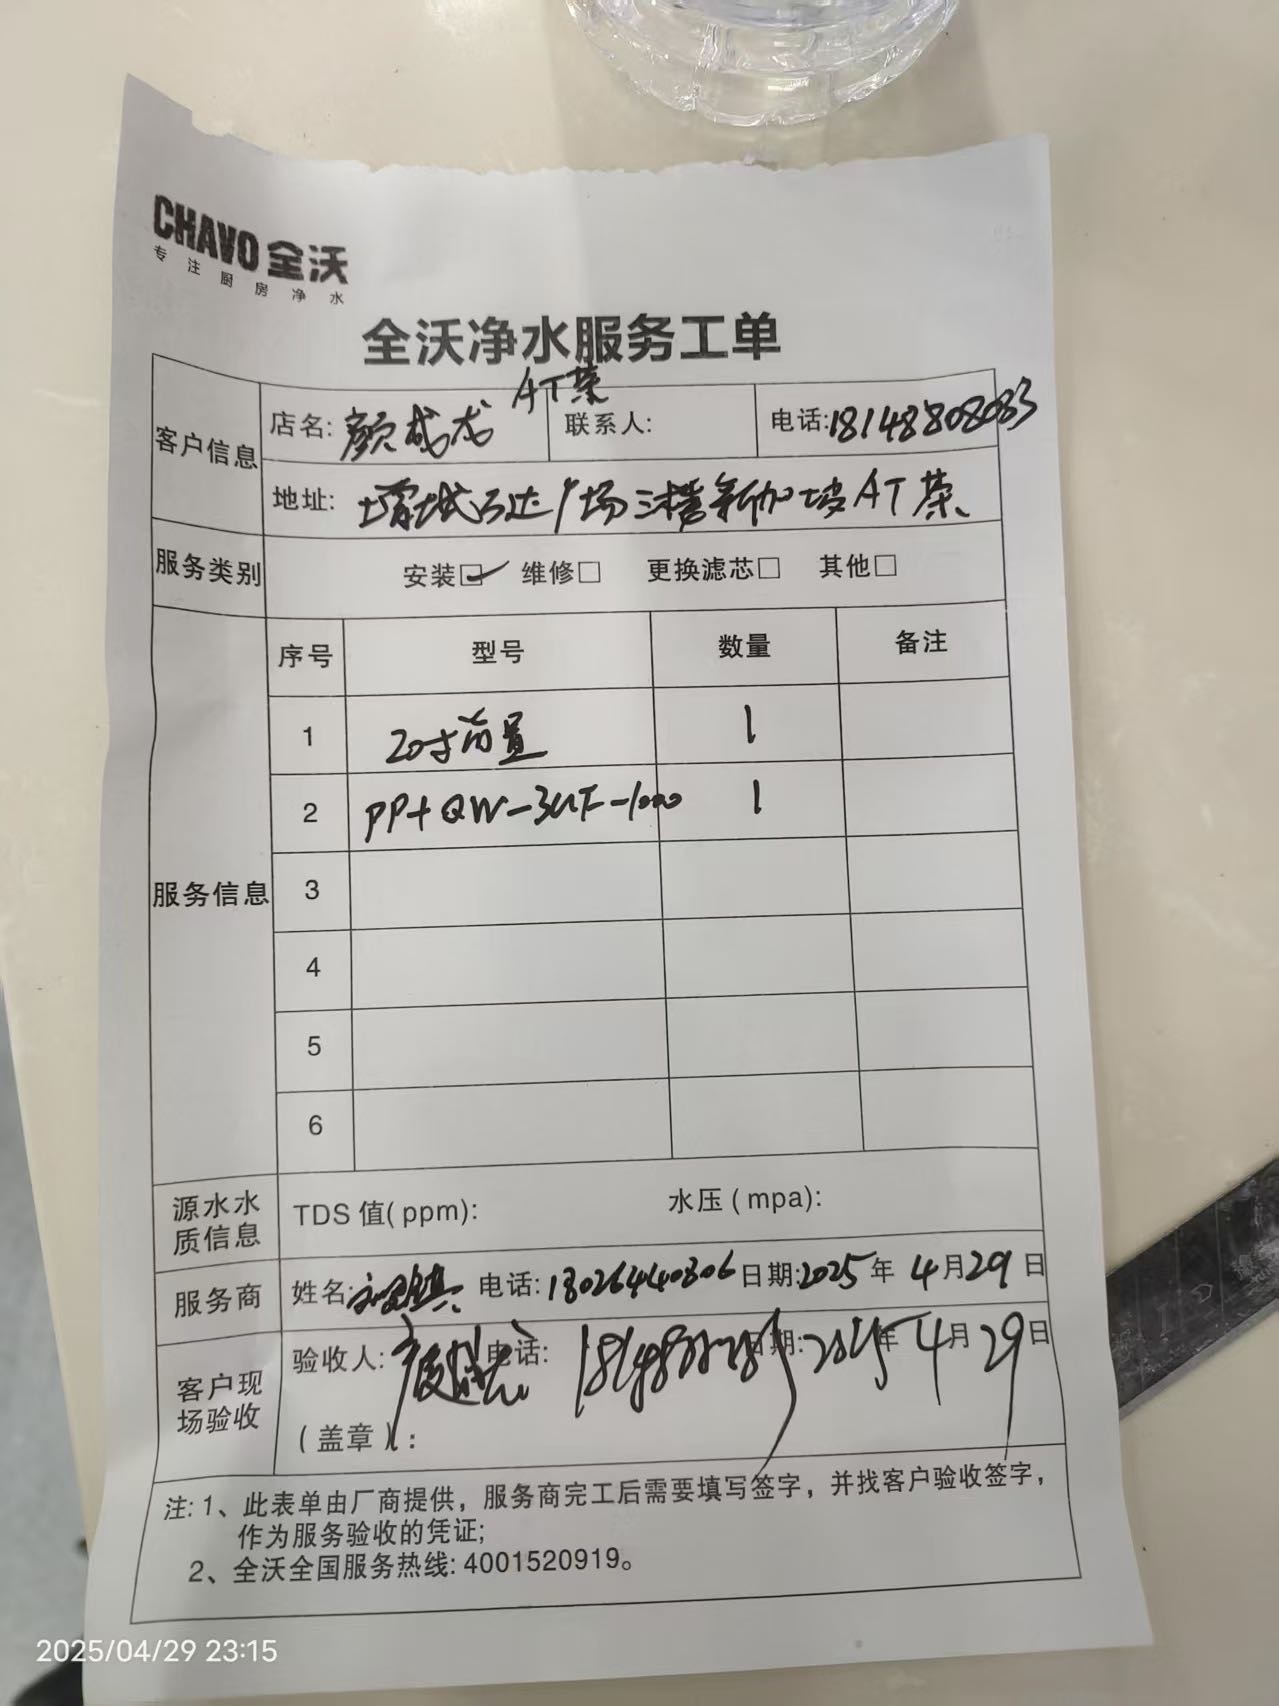 CHAVO 全沃
专注厨房净水
全沃净水服务工单
AT茶
客户信息 店名: 颜成龙 联系人: 电话:18148808083
地址: 增城万达广场三楼新加坡AT茶
服务类别 安装☑ 维修□ 更换滤芯□ 其他□
服务信息 序号 型号 数量 备注
1 20寸前置 1
2 PP+QW-3UF-1000 1
3
4
5
6
源水水质信息 TDS 值(ppm): 水压(mpa):
服务商 姓名: 电话:18026440806 日期:2025年4月29日
客户现场验收 验收人: 电话: 日期:2025年4月29日
(盖章):
注: 1、此表单由厂商提供，服务商完工后需要填写签字，并找客户验收签字，
作为服务验收的凭证;
2、全沃全国服务热线: 4001520919。
2025/04/29 23:15